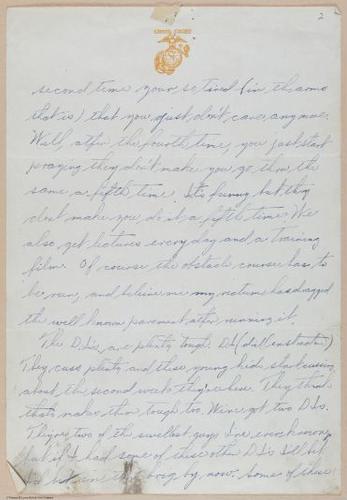 2
second time your so tired (in the arms
that is) that you just don't care anymore.
Well, after the fourth time, you just start
praying they don't make you go thru the
same a fifth time. It's funny but they
don't make you do it a fifth time. We
also get lectures every day and a training
film. Of course the obstacle course has to
be run, and believe me my rectum has dragged
the well known pavement after running it.
The D.I.s, are plenty tough. D.I. (drill instructor)
They cuss plenty and these young kids start cussing
about the second week they're here. They think
thats makes them tough too. We've got two D.I.s.
They're two of the swellest guys I've ever known
but if I had some of these other D.I.s I'll bet
I'd been in the brig by now. Some of these